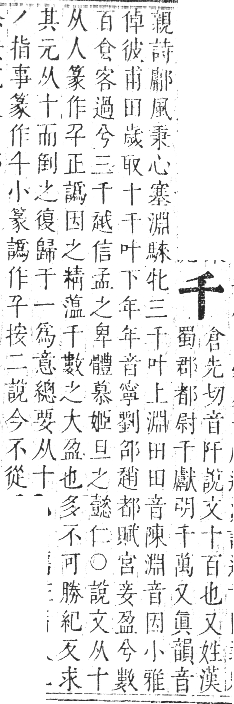 千
倉先切音阡說文十百也又姓漢
蜀郡都尉千獻明千萬又眞韻音
親詩鄘風秉心塞淵騋牝三千叶上淵田田音陳淵音因小雅
倬彼甫田歲取十千叶下年年音寧劉邵趙都賦宮妾盈兮數
百食客過兮三千越信孟之卑體慕姬旦之懿仁○說文从十
从人篆作正譌因之精薀千數之大盈也多不可勝紀反求
其元从十而倒之復歸于一爲意總要从十
丿指事篆作千小篆譌作按二說今不從